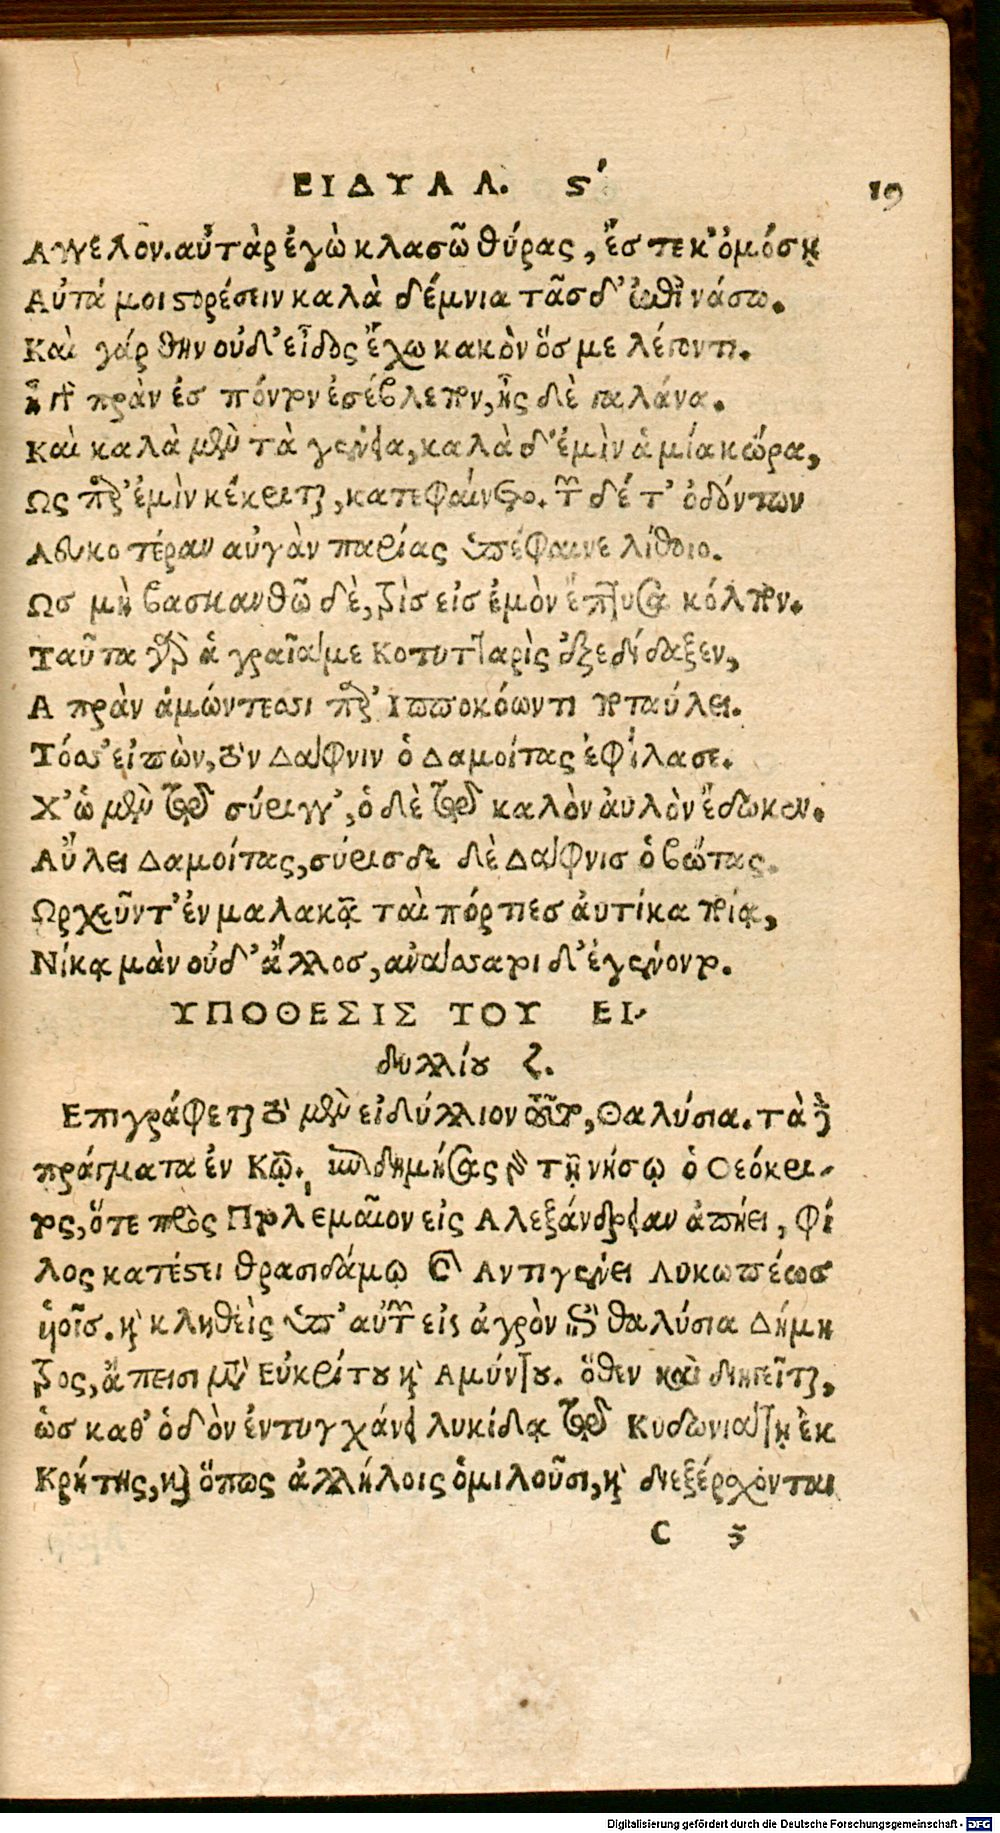 ΕΙΔΥΛΛ. ϛʹ 19
Ἄγγελον. αὐτὰρ ἐγὼ κλασῶ θύρας, ἔς τε κ' ὀμόσῃ
Αὐτά μοι στορέσειν καλὰ δέμνια τᾶσδ' ἐπὶ νάσω.
Καὶ γάρ θην οὐδ' εἶδος ἔχω κακὸν ὅς με λέγοντι.
ἦ γὰρ πρὰν ἐς πόντον ἐσέβλεπον, ἦς δὲ γαλάνα.
Καὶ καλὰ μὲν τὰ γένεια, καλὰ δ' ἐμὶν ἁ μία κώρα,
Ως παρ' ἐμὶν κέκριται, κατεφαίνετο. τῶν δέ τ' ὀδόντων
Λευκοτέραν αὐγὰν παρίας ὑπέφαινε λίθοιο.
Ως μὴ βασκανθῶ δὲ, τρὶς εἰς ἐμὸν ἔπτυσα κόλπον.
Ταῦτα γὰρ ἁ γραῖα με Κοτυτταρὶς ἐξεδίδαξεν,
Α πρὰν ἀμώντεσσι παρ' Ἱπποκόωντι ποταύλει.
Τόσσ' εἰπὼν, τὸν Δάφνιν ὁ Δαμοίτας ἐφίλασε.
Χ' ὡ μὲν τῷ σύριγγ', ὁ δὲ τῷ καλὸν αὐλὸν ἔδωκεν.
Αὔλει Δαμοίτας, σύρισδε δὲ Δάφνις ὁ βώτας.
Ωρχεῦντ' ἐν μαλακᾷ ταὶ πόρτιες αὐτίκα ποίᾳ,
Νίκα μὰν οὐδ' ἄλλος, ἀνάσσατοι δ' ἐγένοντο.
ΥΠΟΘΕΣΙΣ ΤΟΥ ΕΙ-
δυλλίου ζ.
Επιγράφεται τὸ μὲν εἰδύλλιον τοῦτο, Θαλύσια. τὰ δὲ
πράγματα ἐν Κῷ. ἐπιδημήσας γὰρ τῇ νήσῳ ὁ Θεόκρι-
τος, ὅτε πρὸς Πτολεμαῖον εἰς Αλεξάνδρειαν ἀπῄει, φί
λος κατέστει Θρασιδάμῳ καὶ Αντιγένει Λυκωπέως
ἡοῖς. καὶ κληθεὶς ὑπ' αὐτῶν εἰς ἀγρὸν τὰ θαλύσια Δήμη
τρος, ἄπεισι μετὰ Εὐκρίτου καὶ Αμύντου. ὅθεν καὶ διηγεῖται,
ὡς καθ' ὁδὸν ἐντυγχάνει Λυκίδᾳ τῷ Κυδωνιάτῃ ἐκ
Κρήτης, καὶ ὅπως ἀλλήλοις ὁμιλοῦσι, καὶ διεξέρχονται
C 5
Digitalisierung gefördert durch die Deutsche Forschungsgemeinschaft - DFG